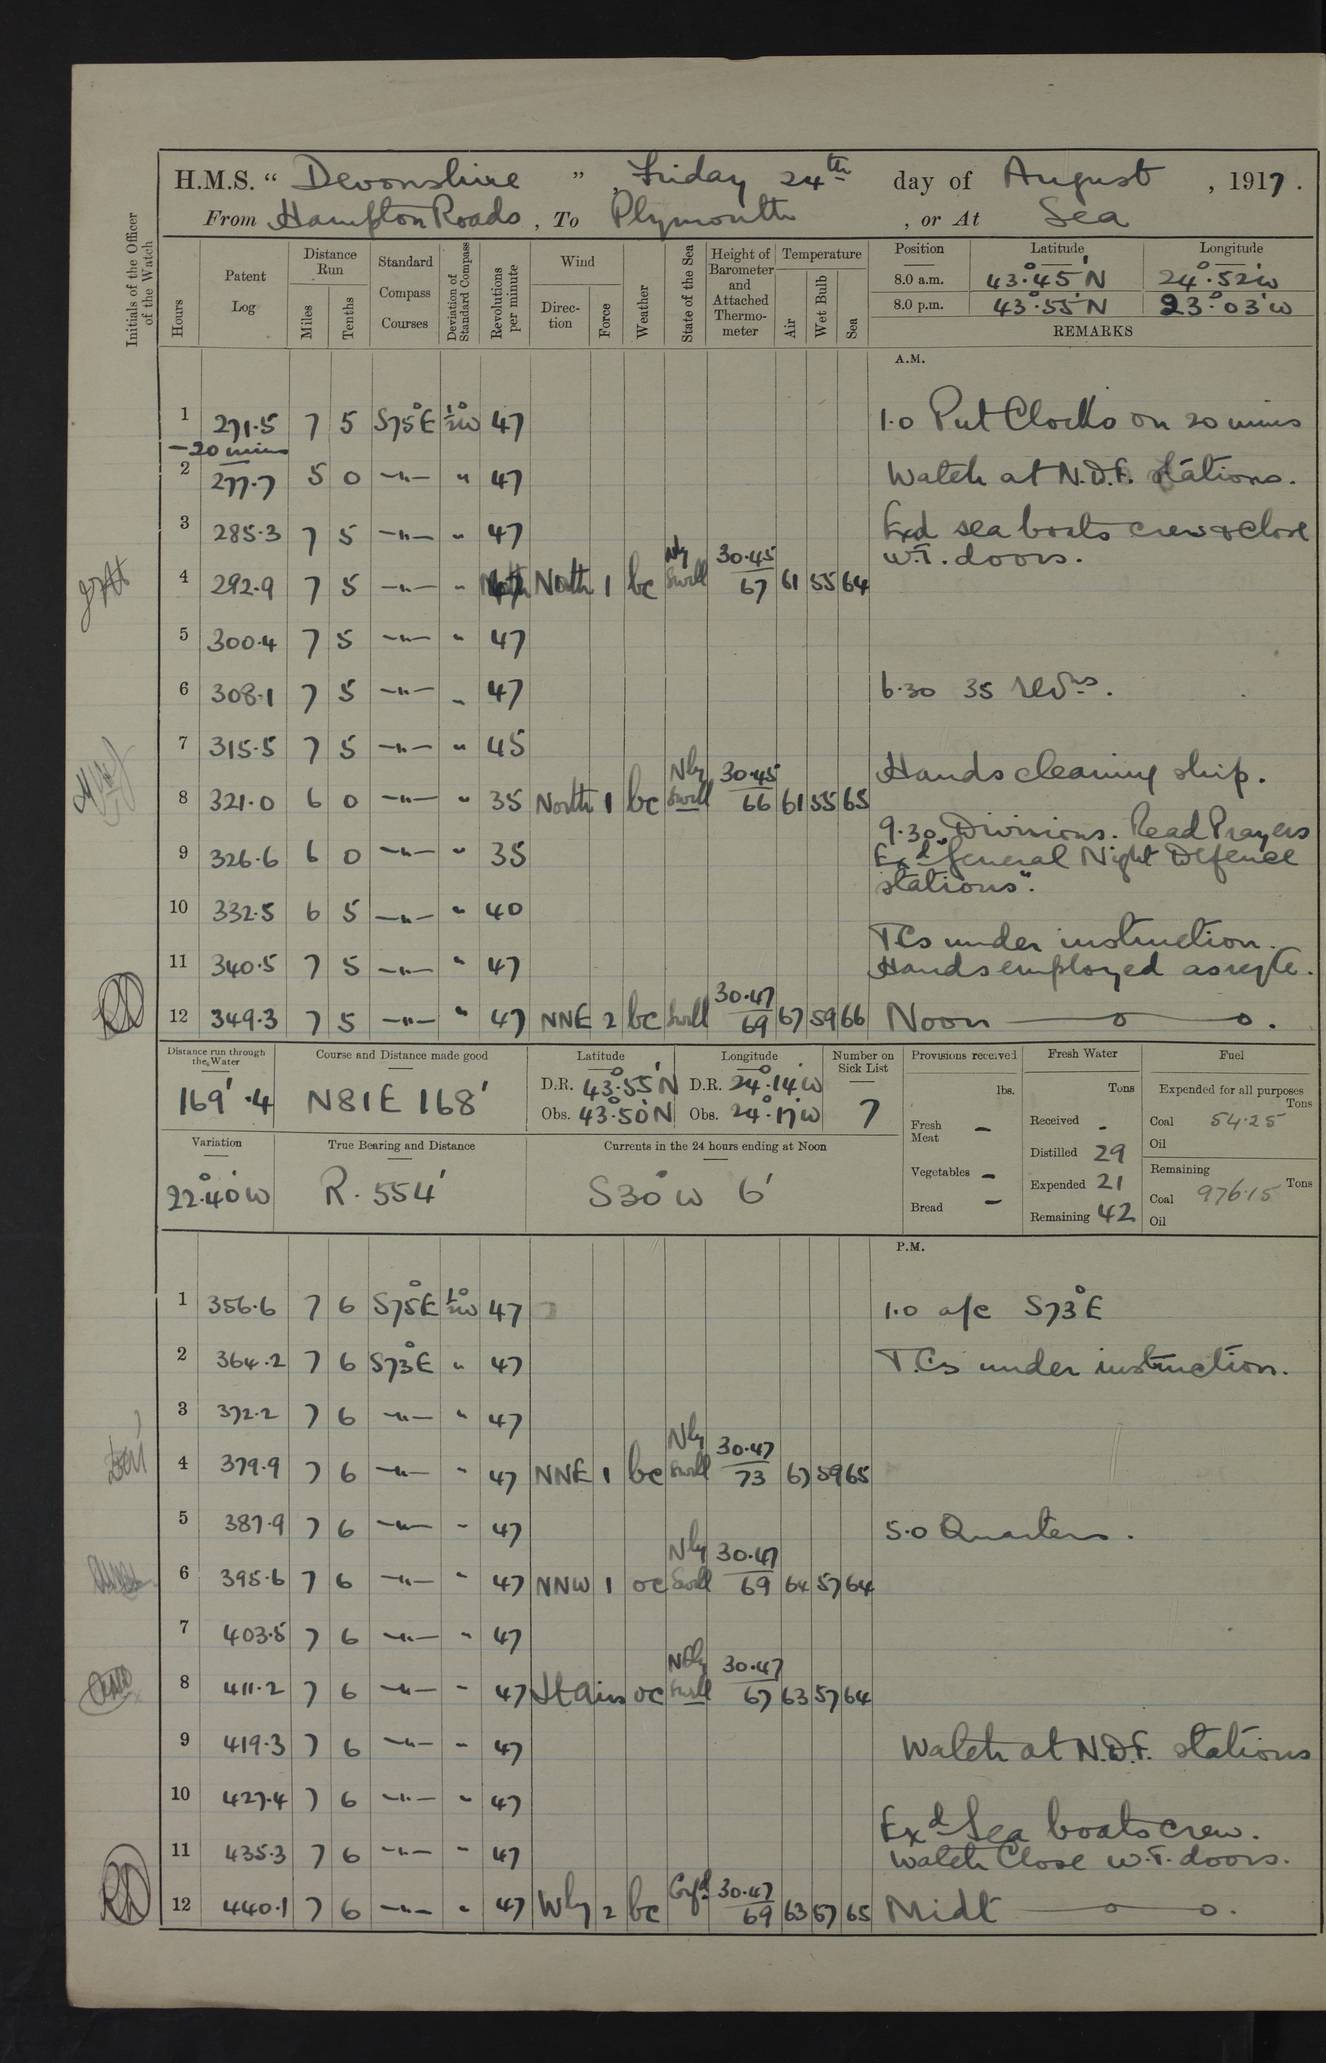 H.M.S. “ Devonshire ” , Friday 24th day of August , 1917 .
From Hampton Roads , To Plymouth , or At Sea
Initials of the Officer of the Watch
Hours
Patent Log
Distance Run
Miles
Tenths
Standard Compass Courses
Deviation of Standard Compass
Revolutions per minute
Wind
Direc-tion
Force
Weather
State of the Sea
Height of Barometer and Attached Thermo-meter
Temperature
Air
Wet Bulb
Sea
Position Latitude Longitude
8.0 a.m. 43°.45'N 24°.52'W
8.0 p.m. 43°.55'N 23°.03'W
REMARKS
A.M.
1 271.5 7 5 S75°E ½°W 47 1.0 Put Clocks on 20 mins
-20 mins
2 277.7 5 0 -"- " 47 Watch at N.D.F. stations.
3 285.3 7 5 -"- " 47 Exd sea boats crew & close
W.T. doors.
4 292.9 7 5 -"- " 47 North 1 bc Nly Swell 30.45/67 61 55 64
5 300.4 7 5 -"- " 47
6 308.1 7 5 -"- " 47 6.30 35 revns.
7 315.5 7 5 -"- " 45
Hands cleaning ship.
8 321.0 6 0 -"- " 35 North 1 bc Nly Swell 30.45/66 61 55 65
9.30 Divisions. Read Prayers
9 326.6 6 0 -"- " 35 Exd "General Night Defence
stations".
10 332.5 6 5 -"- " 40
T.Cs under instruction.
11 340.5 7 5 -"- " 47 Hands employed as reqte.
12 349.3 7 5 -"- " 47 NNE 2 bc Swell 30.47/69 67 59 66 Noon
Distance run through the Water
169'.4
Course and Distance made good
N81E 168'
Latitude
D.R. 43°.55'N
Obs. 43°.50'N
Longitude
D.R. 24°.14'W
Obs. 24°.17'W
Number on Sick List
7
Provisions received
lbs.
Fresh Meat -
Vegetables -
Bread -
Fresh Water
Tons
Received -
Distilled 29
Expended 21
Remaining 42
Fuel
Expended for all purposes
Tons
Coal 54.25
Oil
Remaining
Tons
Coal 976.15
Oil
Variation
22°.40'W
True Bearing and Distance
R. 554'
Currents in the 24 hours ending at Noon
S30°W 6'
P.M.
1 356.6 7 6 S75°E ½°W 47 1.0 a/c S73°E
2 364.2 7 6 S73°E " 47 T.Cs under instruction.
3 372.2 7 6 -"- " 47
4 379.9 7 6 -"- " 47 NNE 1 bc Nly Swell 30.47/73 67 59 65
5 387.9 7 6 -"- " 47 5.0 Quarters.
6 395.6 7 6 -"- " 47 NNW 1 oc Nly Swell 30.47/69 64 57 64
7 403.5 7 6 -"- " 47
8 411.2 7 6 -"- " 47 Lt airs oc Nly Swell 30.47/67 63 57 64
9 419.3 7 6 -"- " 47 Watch at N.D.F. stations
10 427.4 7 6 -"- " 47
Exd Sea boats crew.
11 435.3 7 6 -"- " 47 Watch Close W.T. doors.
12 440.1 7 6 -"- " 47 Wly 2 bc 30.47/69 63 57 65 Midt